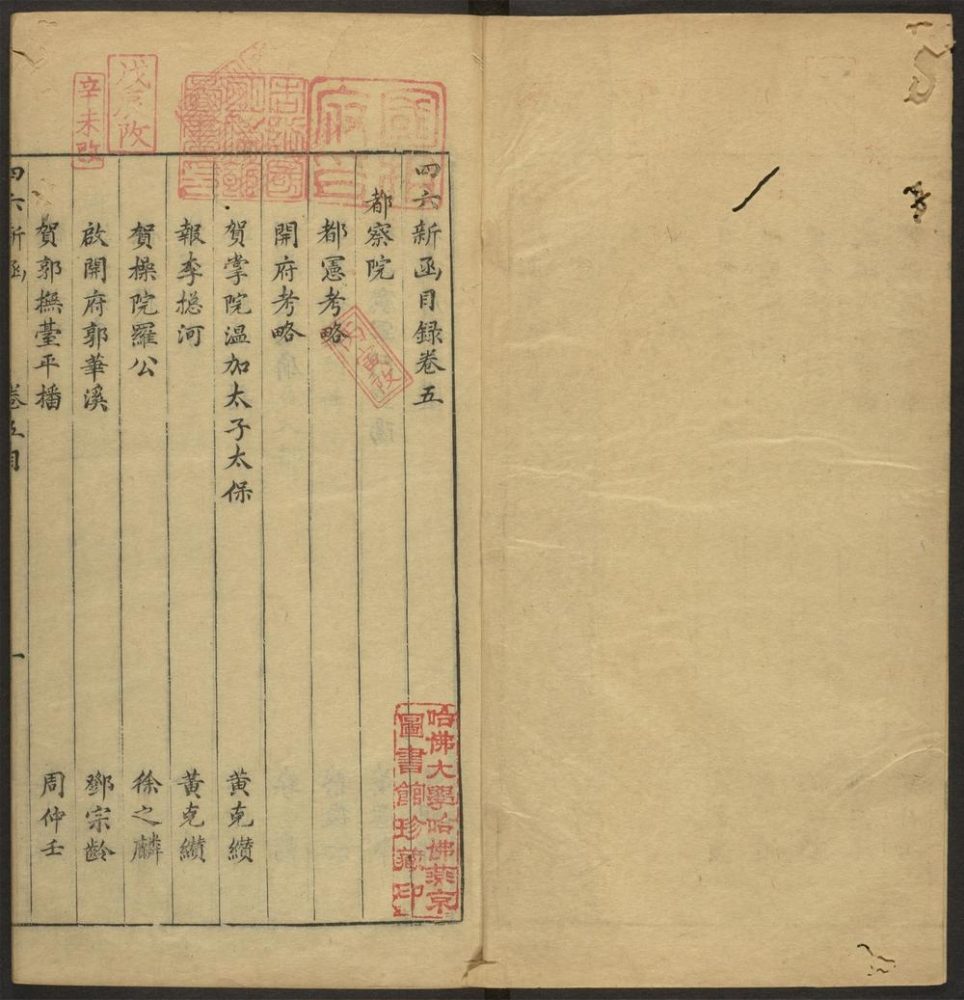 四六新函目録卷五
都察院
都憲考略
開府考略
賀掌院温加太子太保 黄克纘
報李摠河 黄克纘
賀操院羅公 徐之麟
啟開府郭華溪 鄧宗齡
賀郭撫臺平播 周仲士
四六新函 卷五目 一
辛未改
哈佛大學哈佛燕京
圖書館珍藏印